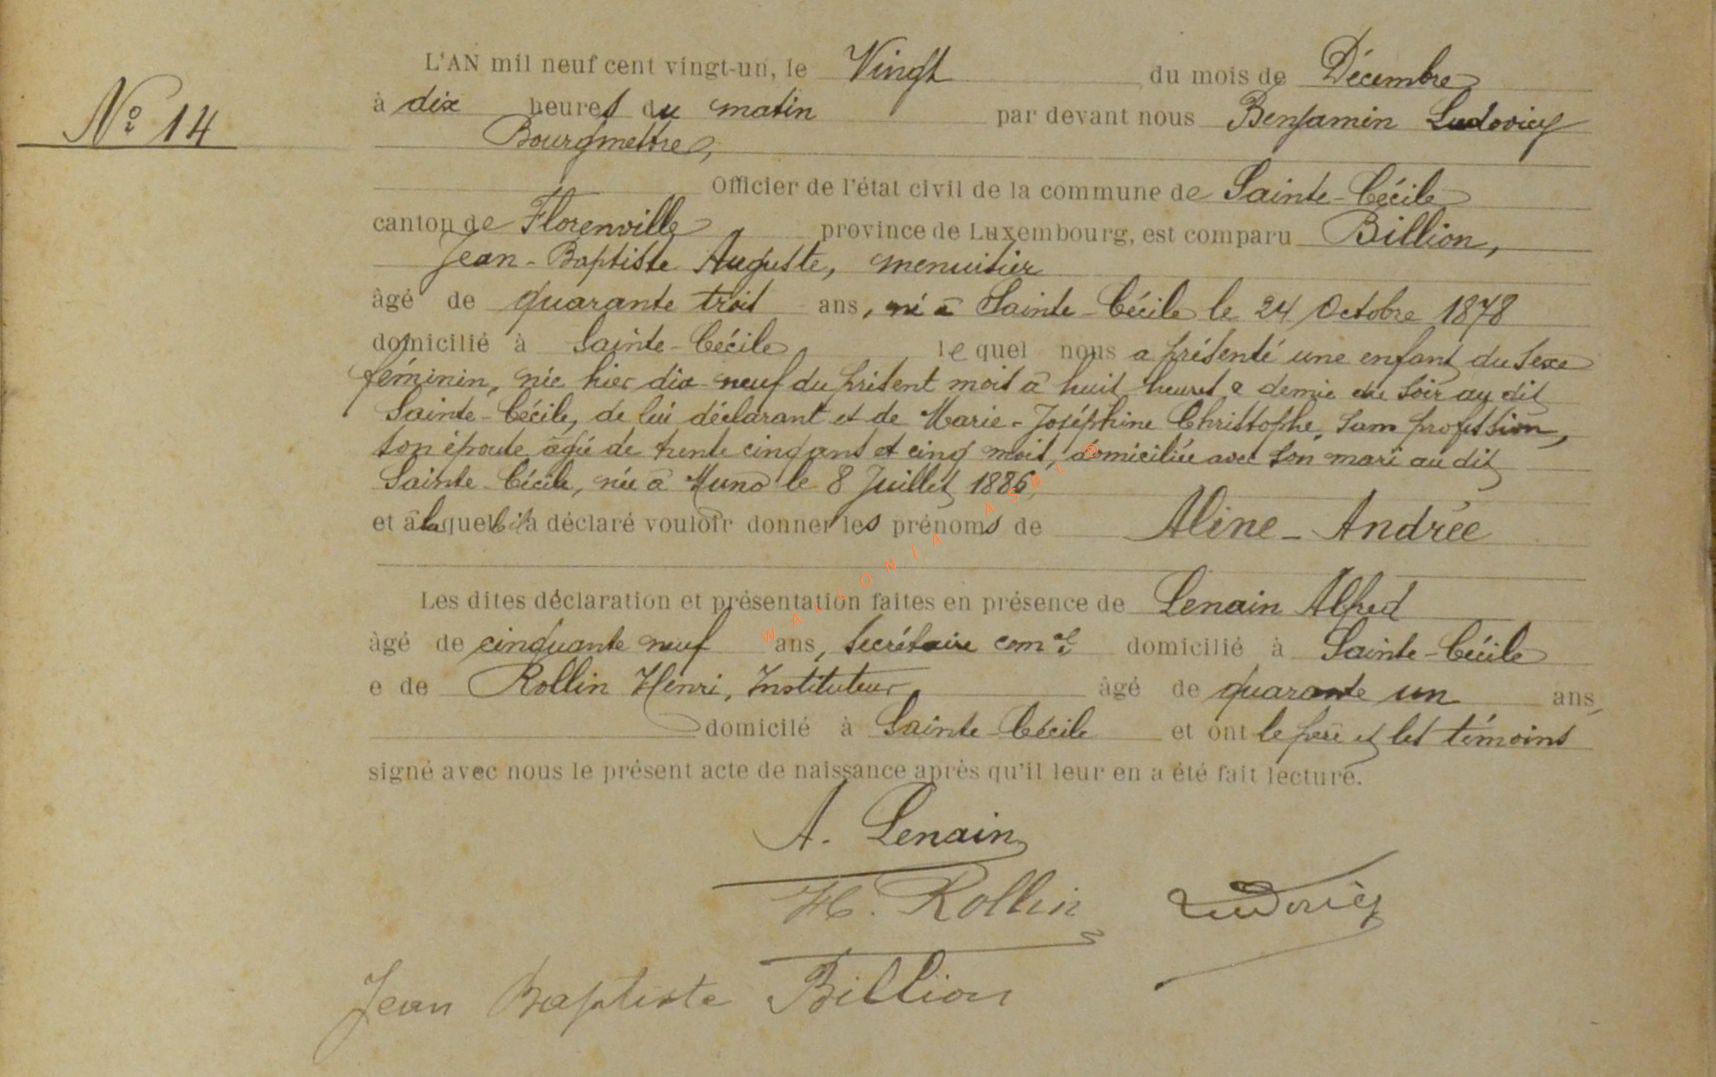 L'AN mil neuf cent vingt-un, le Vingt du mois de Décembre
Nº 14
à dix heures du matin par devant nous Benjamin Ludovicy
Bourgmestre,
Officier de l'état civil de la commune de Sainte-Cécile
canton de Florenville province de Luxembourg, est comparu Billion,
Jean-Baptiste Auguste, menuisier
âgé de quarante trois ans, né à Sainte-Cécile le 24 Octobre 1878
domicilié à Sainte-Cécile lequel nous a présenté une enfant du sexe
féminin, née hier dix-neuf du présent mois à huit heures & demie du soir au dit
Sainte-Cécile, de lui déclarant et de Marie-Joséphine Christophe, sans profession,
son épouse âgée de trente cinq ans et cinq mois, domiciliée avec son mari au dit
Sainte-Cécile, née à Muno le 8 Juillet 1886,
et à laquelle il a déclaré vouloir donner les prénoms de Aline-Andrée
Les dites déclaration et présentation faites en présence de Lenain Alfred
âgé de cinquante neuf ans, Secrétaire comal domicilié à Sainte-Cécile
e de Rollin Henri, Instituteur âgé de quarante un ans,
domicilé à Sainte-Cécile et ont le père et les témoins
signé avec nous le présent acte de naissance après qu'il leur en a été fait lecture.
A. Lenain
H. Rollin Ludovicy
Jean Baptiste Billion